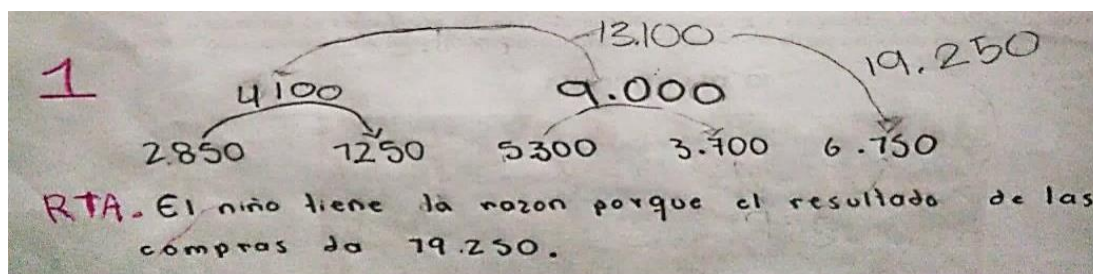 13.100
19.250
1
4100 9.000
2.850 1250 5300 3.700 6.750
RTA. El niño tiene la razon porque el resultado de las
compras da 19.250.